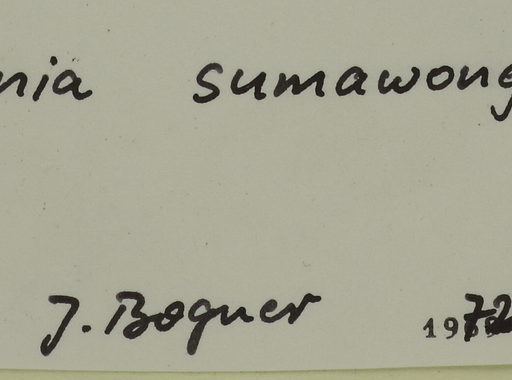 nia sumawong
J. Bogner 1972